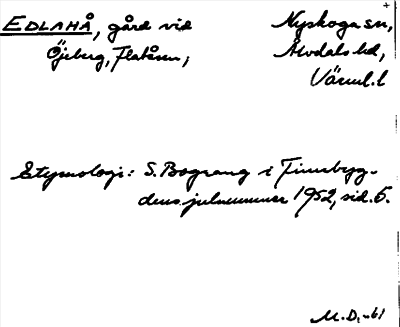 EDLAHÅ, gård vid
Öjeberg, Flatåsen,
Nyskoga sn,
Älvdals hd,
Värml. l
Etymologi: S. Bograng i Finnbyg-
dens julnummer 1952, sid. 6.
M.D. -61